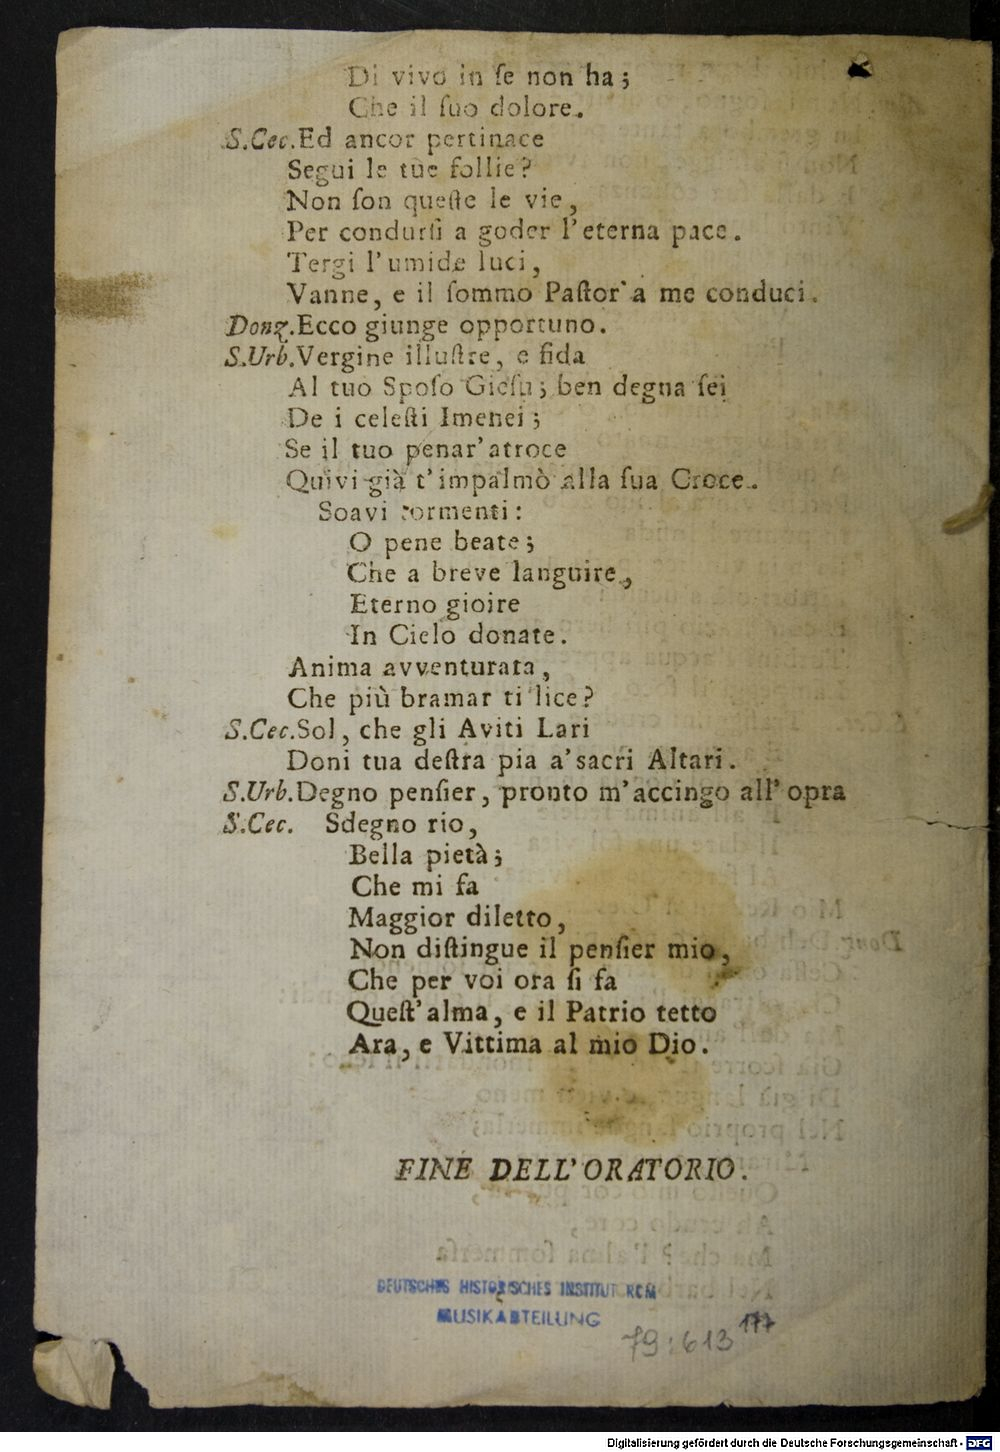 Di vivo in ſe non ha;
Che il ſuo dolore.
S.Cec. Ed ancor pertinace
Segui le tue follie?
Non ſon queſte le vie,
Per condurſi a goder l'eterna pace.
Tergi l'umide luci,
Vanne, e il ſommo Paſtor' a me conduci.
Donz. Ecco giunge opportuno.
S.Urb. Vergine illuſtre, e fida
Al tuo Spoſo Gieſu; ben degna ſei
De i celeſti Imenei;
Se il tuo penar' atroce
Quivi già t'impalmò alla ſua Croce.
Soavi tormenti:
O pene beate;
Che a breve languire,
Eterno gioire
In Cielo donate.
Anima avventurata,
Che più bramar ti lice?
S.Cec. Sol, che gli Aviti Lari
Doni tua deſtra pia a' sacri Altari.
S.Urb. Degno penſier, pronto m'accingo all' opra
S.Cec. Sdegno rio,
Bella pietà;
Che mi fa
Maggior diletto,
Non diſtingue il penſier mio,
Che per voi ora ſi fa
Queſt' alma, e il Patrio tetto
Ara, e Vittima al mio Dio.
FINE DELL' ORATORIO.
DEUTSCHES HISTORISCHES INSTITUT ROM
MUSIKABTEILUNG
79:613 177
Digitalisierung gefördert durch die Deutsche Forschungsgemeinschaft - DFG